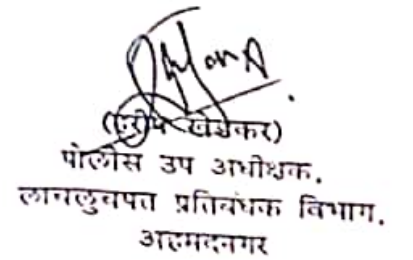 (हरीष खेडकर)
पोलीस उप अधीक्षक.
लाचलुचपत प्रतिबंधक विभाग.
अहमदनगर